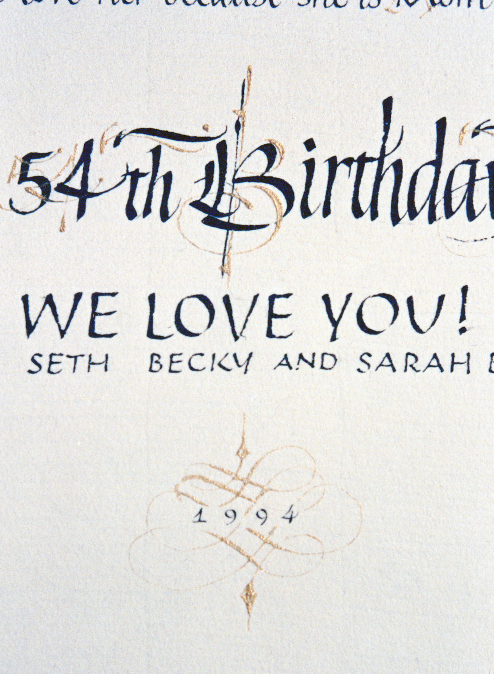 her because she is
54th Birthday
WE LOVE YOU!
SETH BECKY AND SARAH
1994